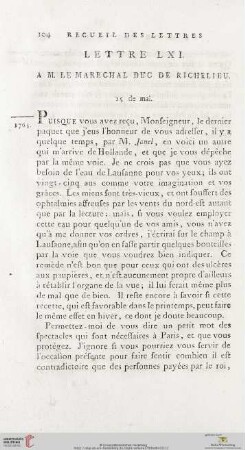 104 RECUEIL DES LETTRES
LETTRE LXI.
A M. LE MARECHAL DUC DE RICHELIEU.
15 de mai.
PUISQUE vous avez reçu, Monſeigneur, le dernier
paquet que j'eus l'honneur de vous adreſſer, il y a
quelque temps, par M. Janel, en voici un autre
qui m'arrive de Hollande, et que je vous dépêche
par la même voie. Je ne crois pas que vous ayez
beſoin de l'eau de Lauſanne pour vos yeux; ils ont
vingt-cinq ans comme votre imagination et vos
grâces. Les miens ſont très-vieux, et ont ſouffert des
ophtalmies affreuſes par les vents du nord eſt autant
que par la lecture; mais, ſi vous voulez employer
cette eau pour quelqu'un de vos amis, vous n'avez
qu'à me donner vos ordres, j'écrirai ſur le champ à
Lauſanne, afin qu'on en faſſe partir quelques bouteilles
par la voie que vous voudrez bien indiquer. Ce
remède n'eſt bon que pour ceux qui ont des ulcères
aux paupières, et il eſt aucunement propre d'ailleurs
à rétablir l'organe de la vue; il lui ferait même plus
de mal que de bien. Il reſte encore à ſavoir ſi cette
recette, qui eſt favorable dans le printemps, peut faire
le même effet en hiver, ce dont je doute beaucoup.
Permettez-moi de vous dire un petit mot des
ſpectacles qui ſont néceſſaires à Paris, et que vous
protégez. J'ignore ſi vous pourriez vous ſervir de
l'occaſion préſente pour faire ſentir combien il eſt
contradictoire que des perſonnes payées par le roi,